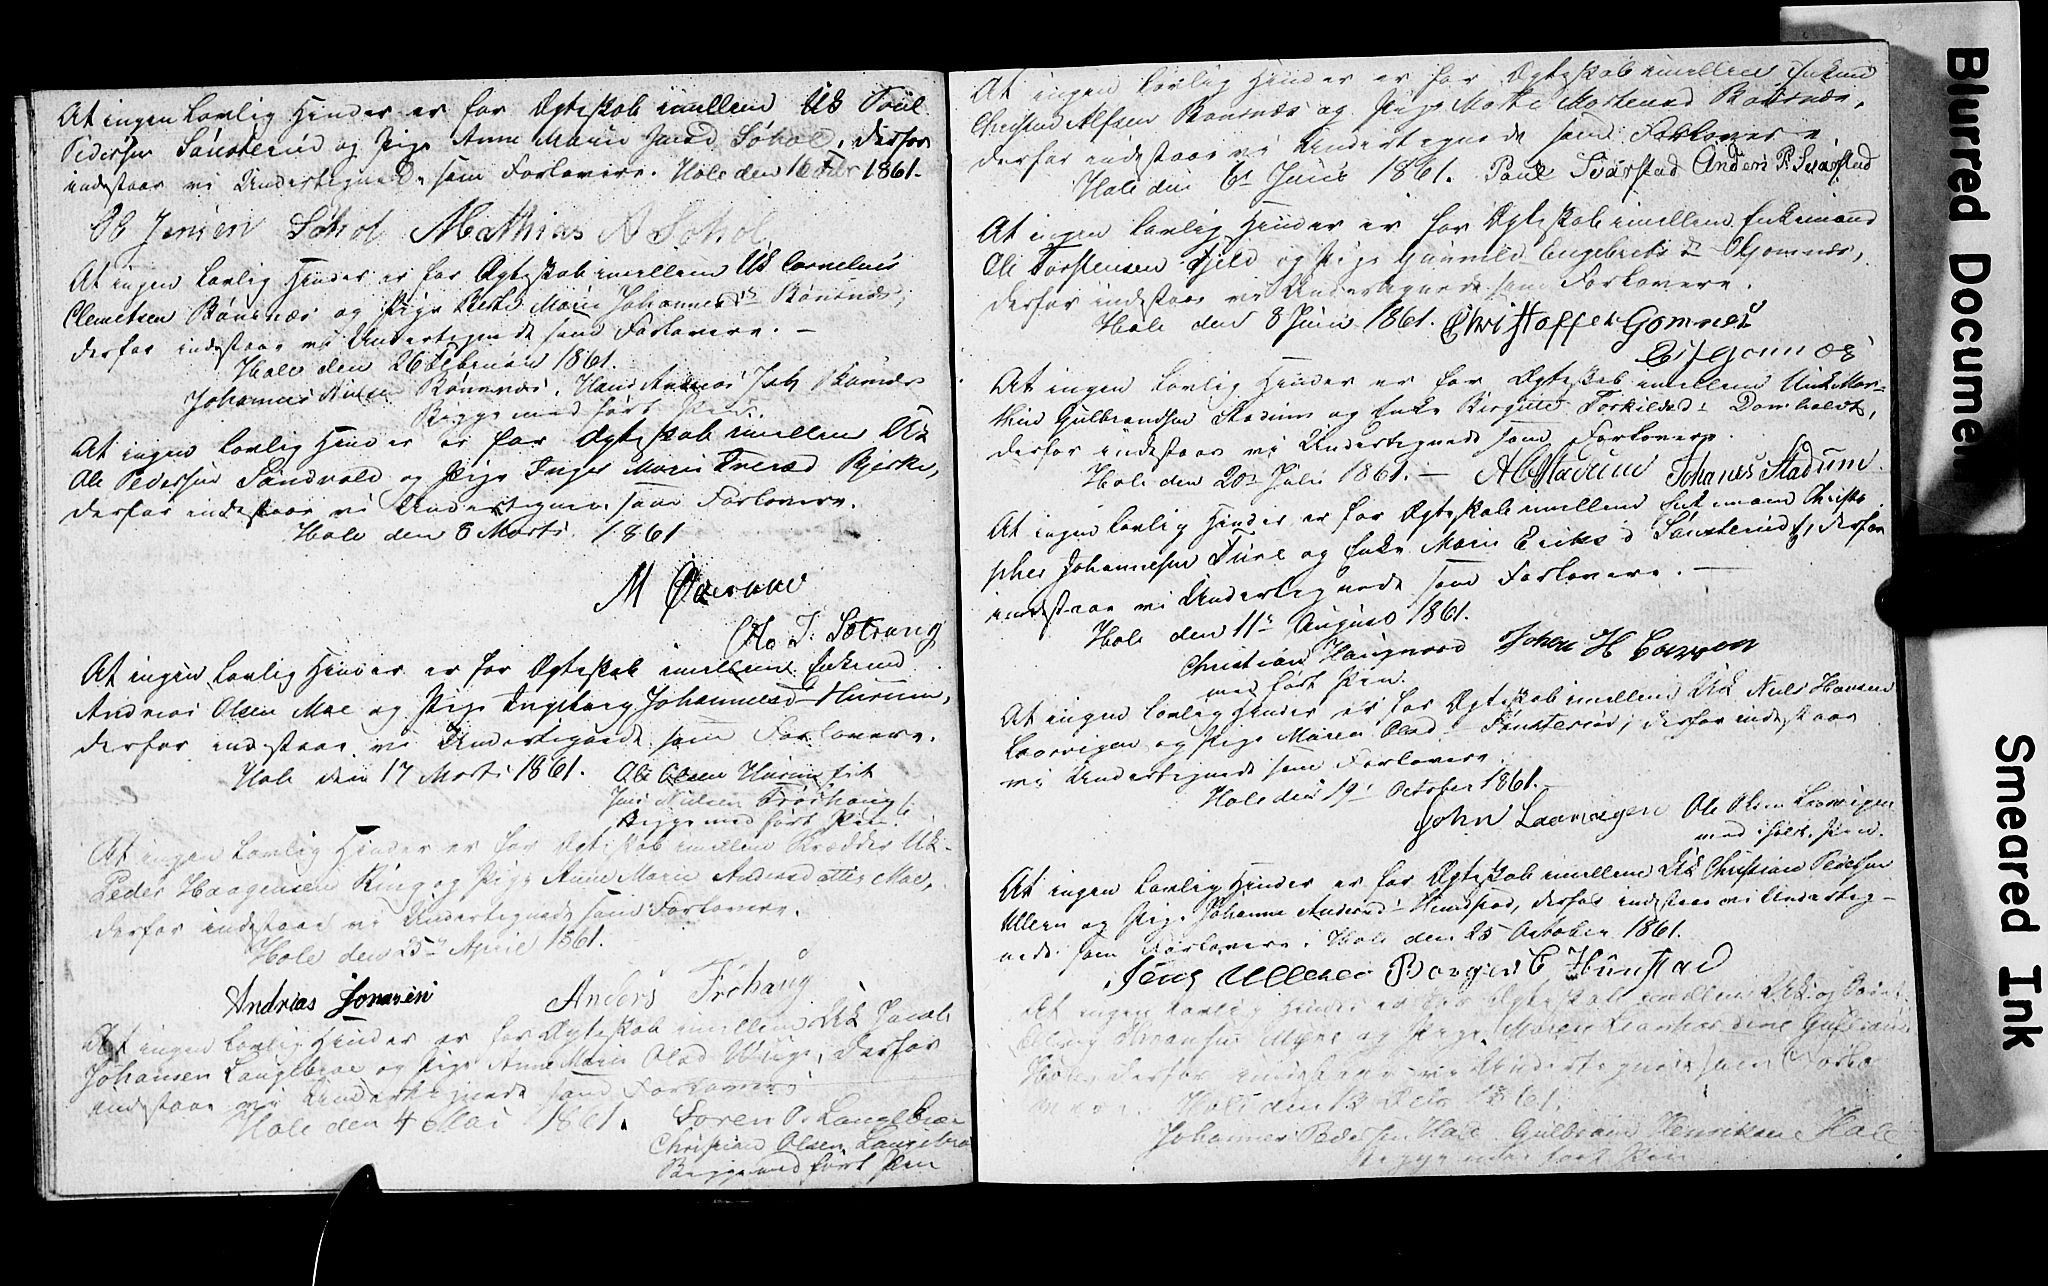 At ingen Lovlig Hinder er for Ægteskab imellem UK Poul
Pedersen Sønsterud og Pige Anne Marie Jensd Søhol, derfor
indestaar vi Undertegnede som Forlovere. Hole den 16 Febr 1861.
Ole Jensen Søhol Mathias A Sohol
At ingen Lovlig Hinder er for Ægteskab imellem UK Cornelius
Clemetsen Rønsnæs og Pige Marie Johannesd Rønsnæs,
derfor indestaar vi Undertegnede som Forlovere. —
Hole den 26 Februar 1861.
Johannes Rønsnæs, Hans
Begge med ført Pen.
At ingen Lovlig Hinder er for Ægteskab imellem UK
Ole Pedersen Sandvold og Pige Inger Marie Iversd Bjerke,
derfor indestaar vi Undertegnede som Forlovere.
Hole den 8 Marts 1861
M
O. T. Solvang
At ingen Lovlig Hinder er for Ægteskab imellem Enkemd
Andreas Olsen Moe og Pige Ingeborg Johannesd Hurum,
derfor indestaar vi Undertegnede som Forlovere.
Hole den 17 Marts 1861. Ole Olsen Hurum
Jens Nielsen Frøshaug
Begge med ført Pen.
At ingen Lovlig Hinder er for Ægteskab imellem Skrædder UK
Peder Haagensen Ring og Pige Anne Marie Andersdatter Moe,
derfor indestaar vi Undertegnede som Forlovere.
Hole den 25n April 1861.
Andrias Jonsen Anders Fröhaug
At ingen Lovlig Hinder er for Ægteskab imellem UK Jacob
Johansen Langebroe og Pige Anne Marie Olsd, derfor
indestaar vi Undertegnede som Forlovere
Hole den 4 Mai 1861. Soren P.
Christian Olsen Langebro
Begge med ført Pen
At ingen Lovlig Hinder er for Ægteskab imellem Enkemd
Christen Alfsen Rønsnæs og Pige Mortensd Rønsnæs,
derfor indestaar vi Undertegnede som Forlovere
Hole den 6t Juni 1861. Paul Svarstad Anders P. Svarstad
At ingen Lovlig Hinder er for Ægteskab imellem Enkemand
Ole Torstensen Fjeld og Pige Gunnild Engebretsdr Gomnæs,
derfor indestaar vi Undertegnede som Forlovere.
Hole den 8 Juni 1861. Christoffer Gomnes
Gomnæs
At ingen Lovlig Hinder er for Ægteskab imellem
Gulbrandsen Stadum og Enke Birgitte Torkildsd Domholdt,
derfor indestaar vi Undertegnede som Forlovere.
Hole den 20n Juli 1861. — Stadum Johanes Stadum
At ingen Lovlig Hinder er for Ægteskab imellem Enkemand Christo
pher Johannesen Ture og Enke Marie Eriksd Sønsterud, derfor
indestaar vi Undertegnede som Forlovere. —
Hole den 11n August 1861.
Christian Haugnord Johan H
med ført Pen.
At ingen Lovlig Hinder er for Ægteskab imellem UK Niels Hansen
Laarvigen og Pige Maren Olsd Sønsterud, derfor indestaar
vi Undertegnede som Forlovere.
Hole den 19 October 1861.
John Laarvigen Ole Olsen Laarvigen
med ført Pen.
At ingen Lovlig Hinder er for Ægteskab imellem UK Christian Pedersen
Ullern og Pige Johanne Andersd Hundstad, derfor indestaar vi Underteg-
nede som Forlovere. Hole den 25 October 1861.
Jens Ulleren Borger C Hunstad
At ingen Lovlig Hinder er for Ægteskab imellem UK og
og Pige Maren
Hole, derfor indestaar vi Undertegnede som Forlo
vere. Hole den 13 Decbr 1861.
Johannes Pedersen Hole Gulbrand Henriksen Hole
Begge med ført Pen
Blurred Document
Smeared Ink